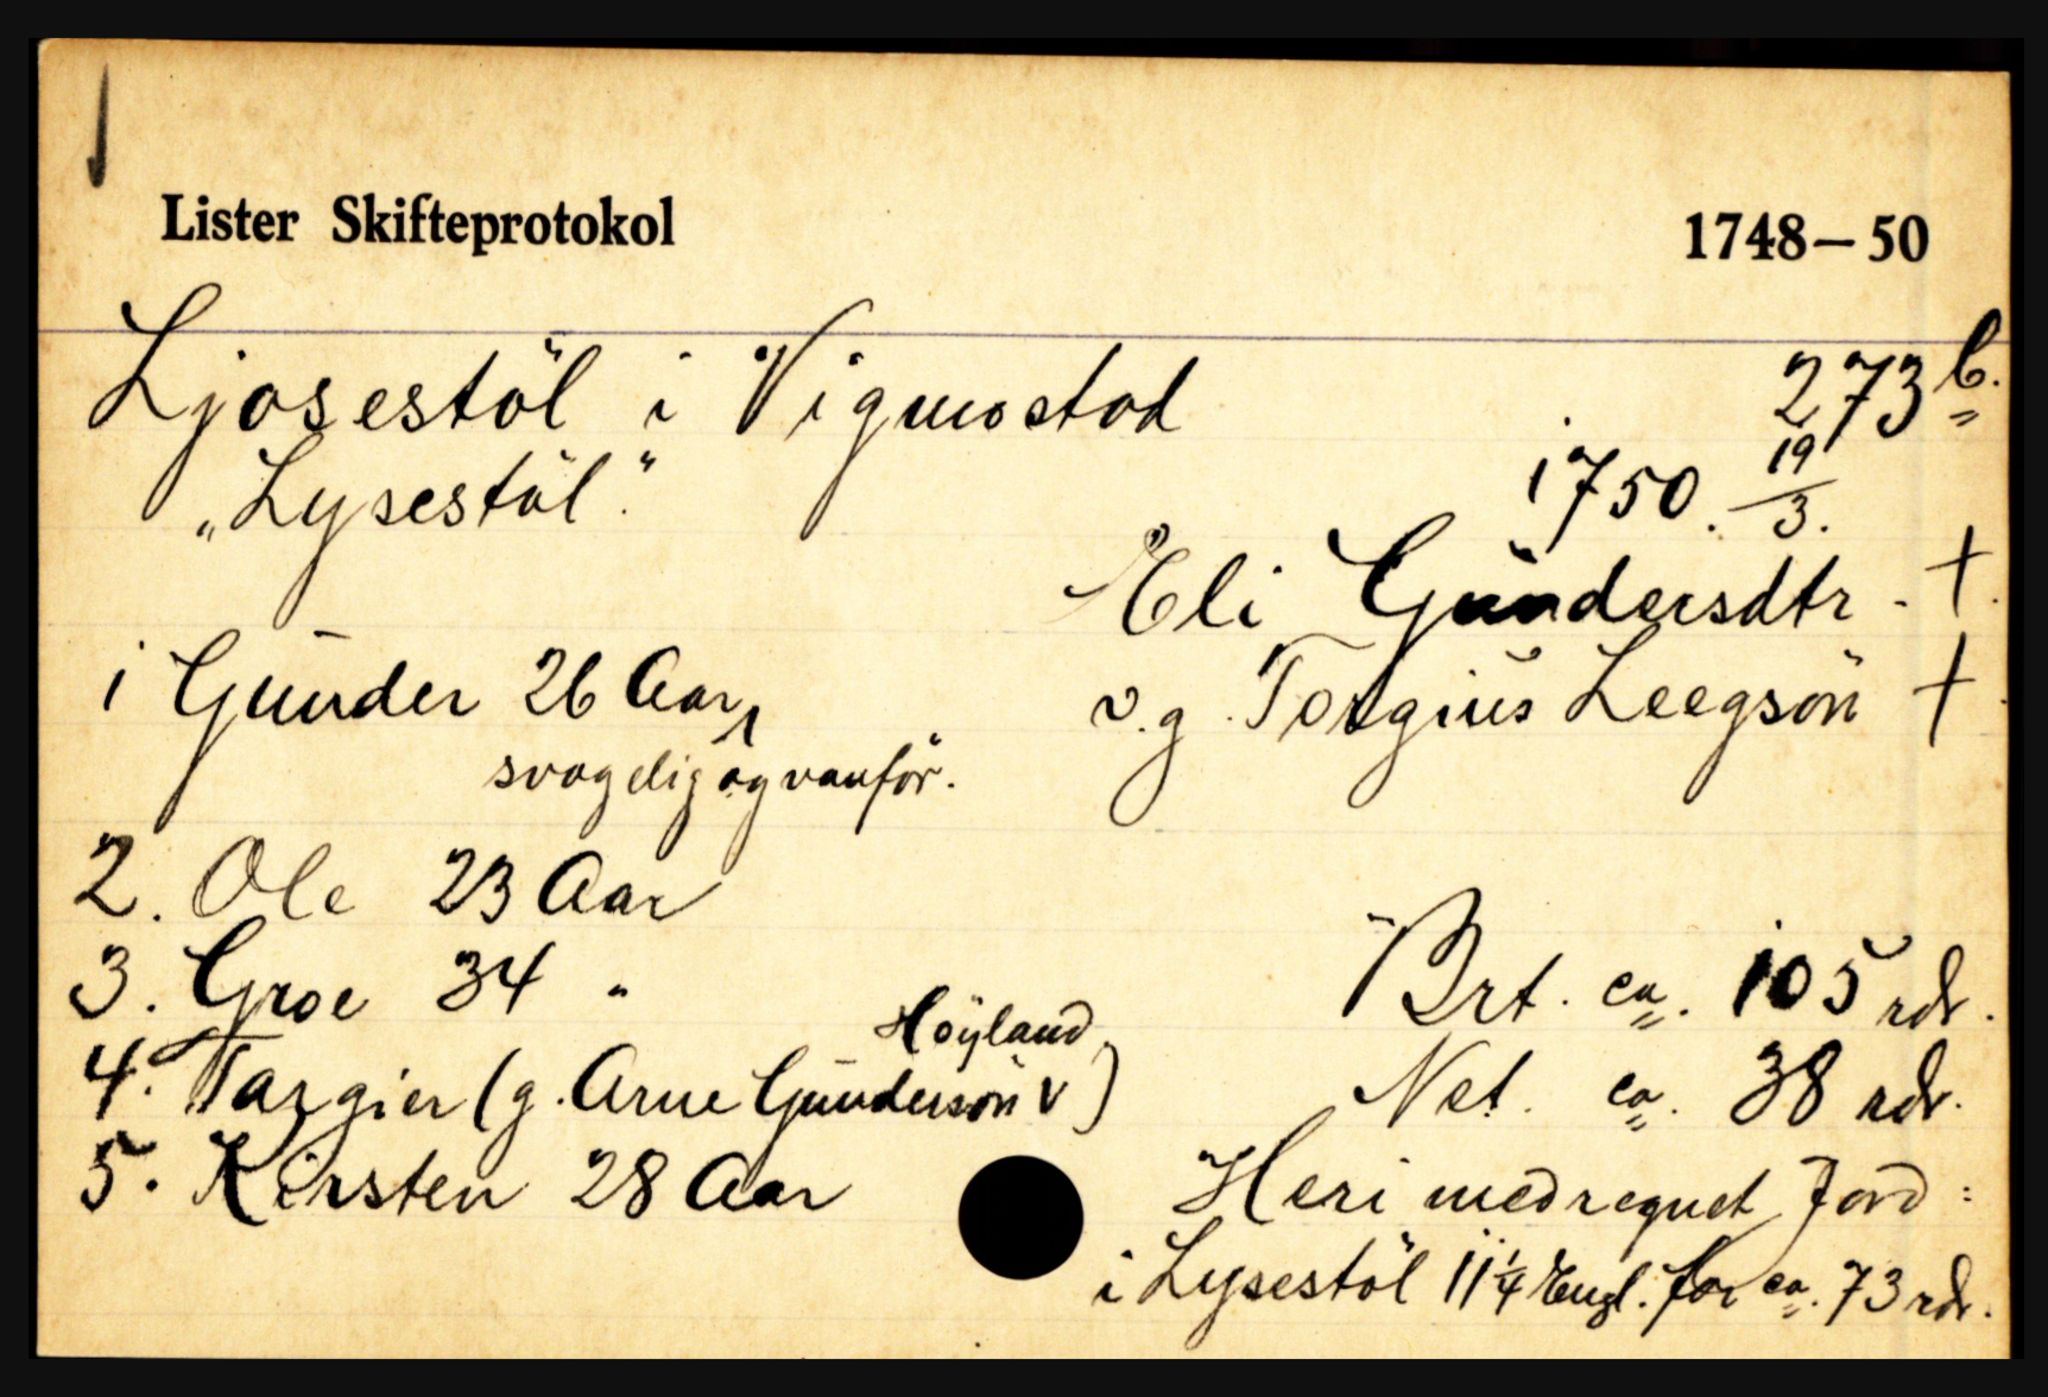 Lister Skifteprotokol 1748–50
Ljosestöl i Vigmostad 273 b.
„Lysestöl." 1750. 19/3.
Eli Gundersdtr. +.
1 Gunder 26 Aar, v.g. Torgius Leegsön +.
svagelig og vanför.
2. Ole 23 Aar
3. Groe 34 " Brt. ca. 105 rdr.
Höyland
4. Targier (g. Arne Gundersön v) Net. ca. 38 rdr.
5. Kirsten 28 Aar Heri medregnet Jord:
i Lysestöl 11 1/4 Engl. for ca. 73 rdr.